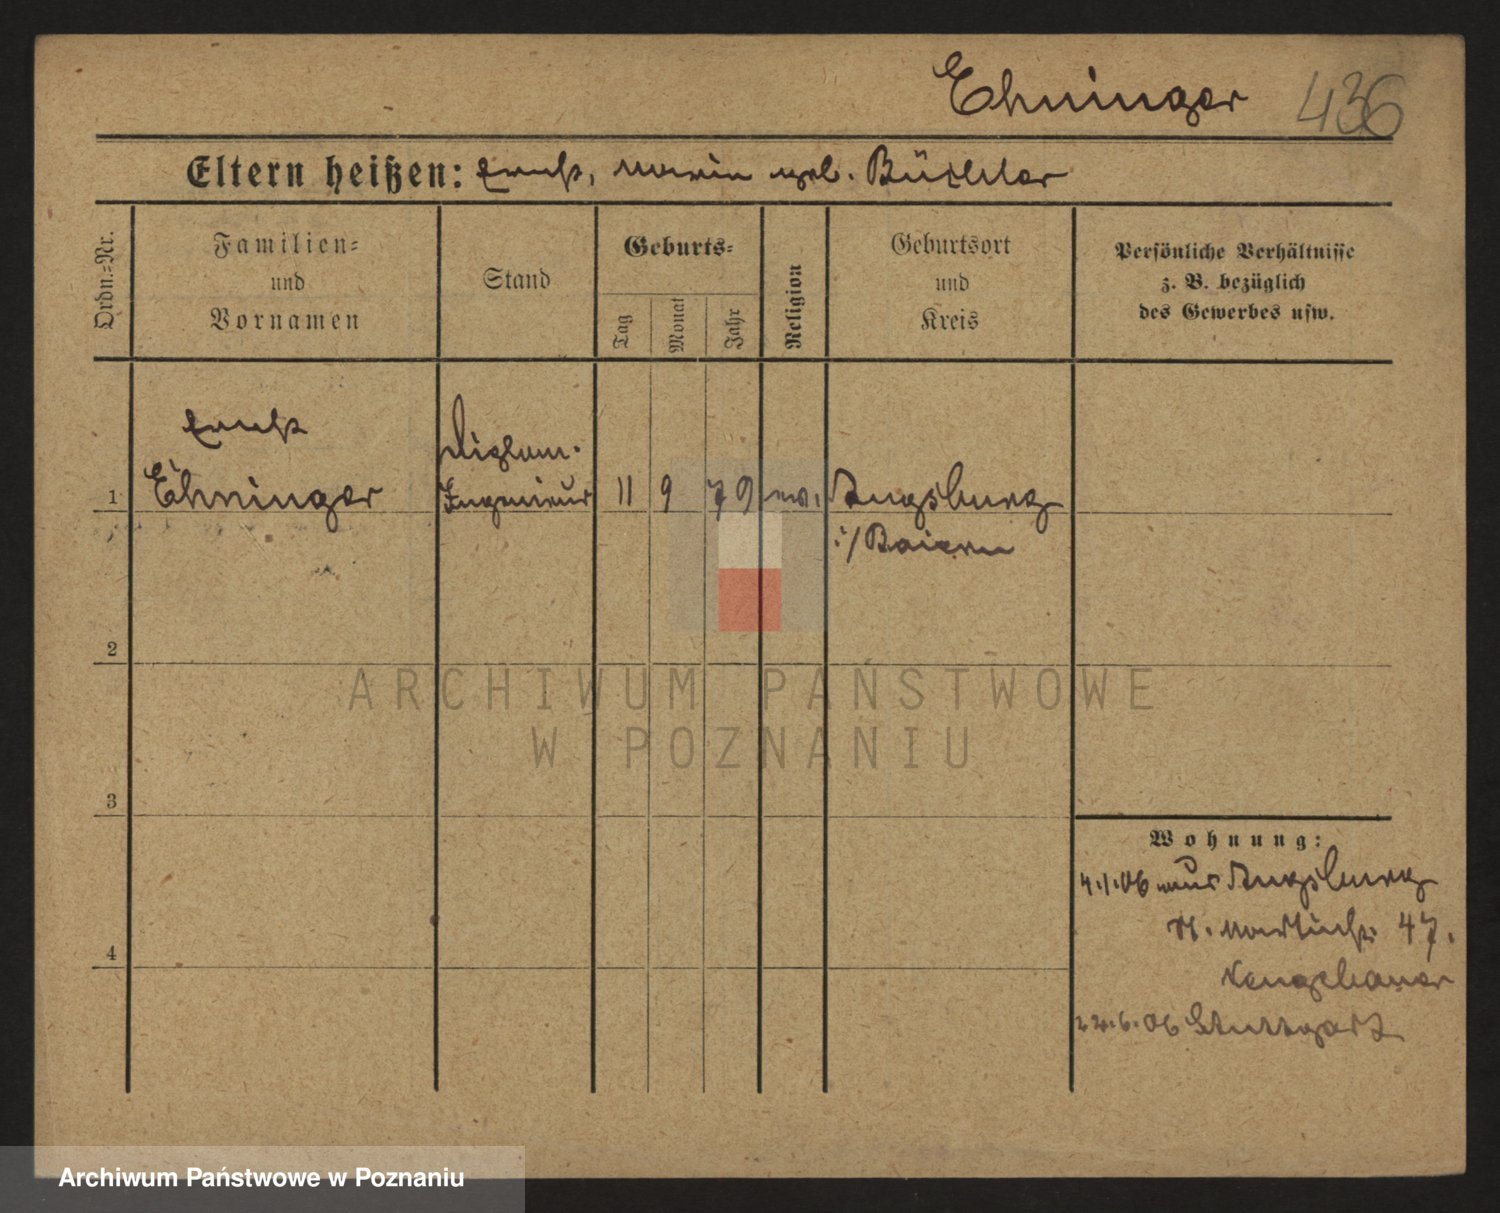 Ehninger 436
Eltern heißen: Ernst, Marie geb. Büchler
Ordn.=Nr.
Familien=
und
Vornamen
Stand
Geburts=
Tag
Monat
Jahr
Religion
Geburtsort
und
Kreis
Persönliche Verhältnisse
z. B. bezüglich
des Gewerbes usw.
Ernst
Diplom-
1 Ehninger Ingenieur 11 9 79 ev. Augsburg
i/Baiern
2
ARCHIWUM PAŃSTWOWE
W POZNANIU
3
Wohnung:
4.1.06 aus Augsburg
47.
4
22.6.06 Stuttgart
Archiwum Państwowe w Poznaniu